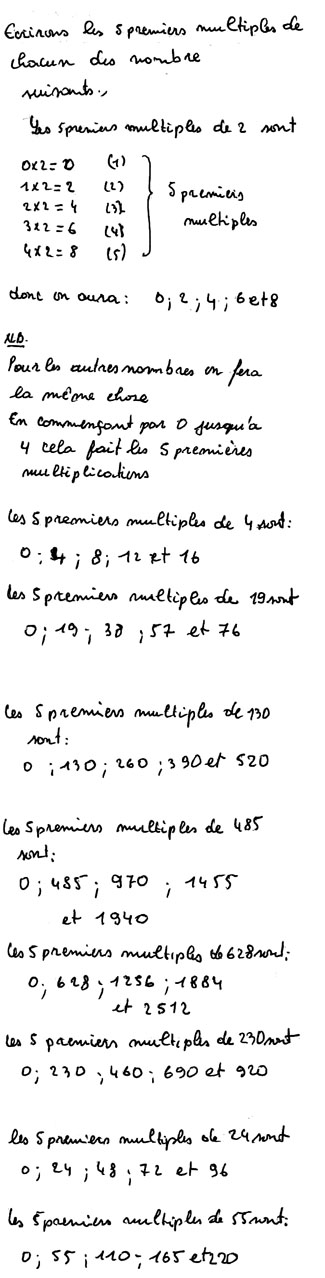 Ecrivons les 5 premiers multiples de
chacun des nombre
suivants.,
Les 5 premiers multiples de 2 sont
0x2=0 (1)
1x2=2 (2)
2x2=4 (3)
3x2=6 (4)
4x2=8 (5)
5 premiers
multiples
donc on aura : 0; 2; 4; 6 et 8
N.B.
Pour les autres nombres on fera
la même chose
En commençant par 0 jusqu'a
4 cela fait les 5 premières
multiplications
les 5 premiers multiples de 4 sont:
0; 4; 8; 12 et 16
les 5 premiers multiples de 19 sont
0; 19; 38; 57 et 76
les 5 premiers multiples de 130
sont:
0; 130; 260; 390 et 520
les 5 premiers multiples de 485
sont:
0; 485; 970; 1455
et 1940
les 5 premiers multiples de 628 sont:
0; 628; 1256; 1884
et 2512
les 5 premiers multiples de 230 sont
0; 230; 460; 690 et 920
les 5 premiers multiples de 24 sont
0; 24; 48; 72 et 96
les 5 premiers multiples de 55 sont:
0; 55; 110; 165 et 220